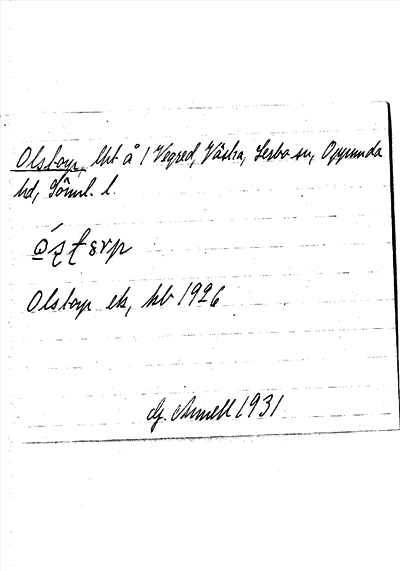 Olstorp, lht å 1 Vegred, Västra, Lerbo sn, Oppunda
hd, Söml. l.
Olstorp ek, kb 1926
G. Annell 1931